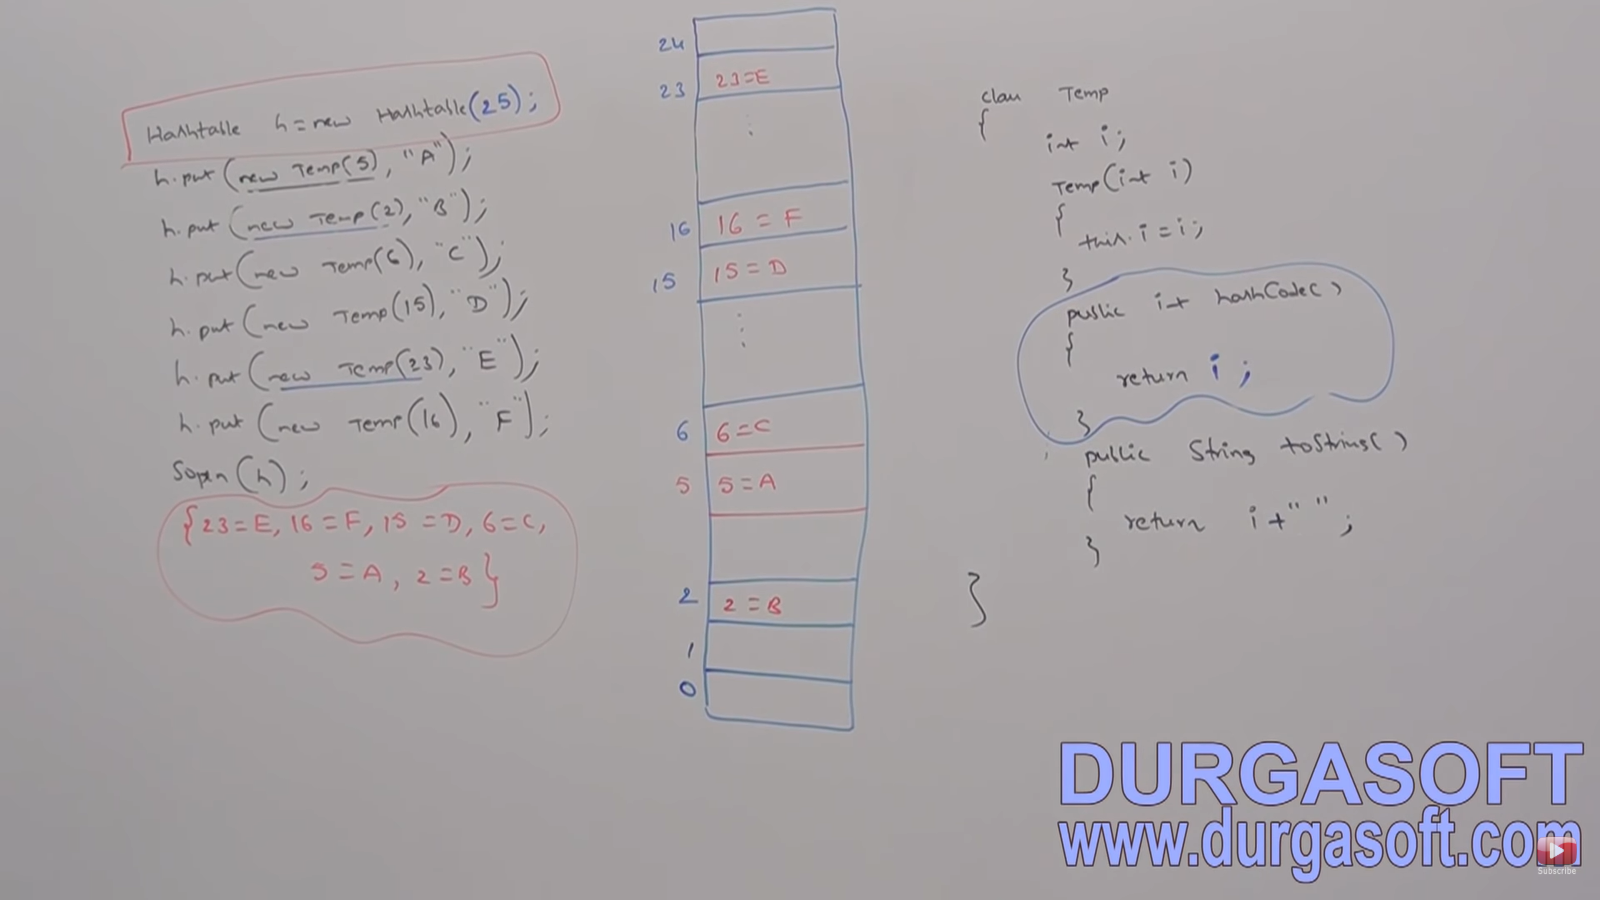 Hashtable h=new Hashtable(25);
h.put(new Temp(5), "A");
h.put(new Temp(2), "B");
h.put(new Temp(6), "C");
h.put(new Temp(15), "D");
h.put(new Temp(23), "E");
h.put(new Temp(16), "F");
Sopln(h);
{23=E, 16=F, 15=D, 6=C,
5=A, 2=B}
24
23 23=E
16 16=F
15 15=D
6 6=C
5 5=A
2 2=B
1
0
class Temp
{
int i;
Temp(int i)
{
this.i=i;
}
public int hashCode()
{
return i;
}
public String toString()
{
return i+"";
}
}
DURGASOFT
www.durgasoft.com
Subscribe